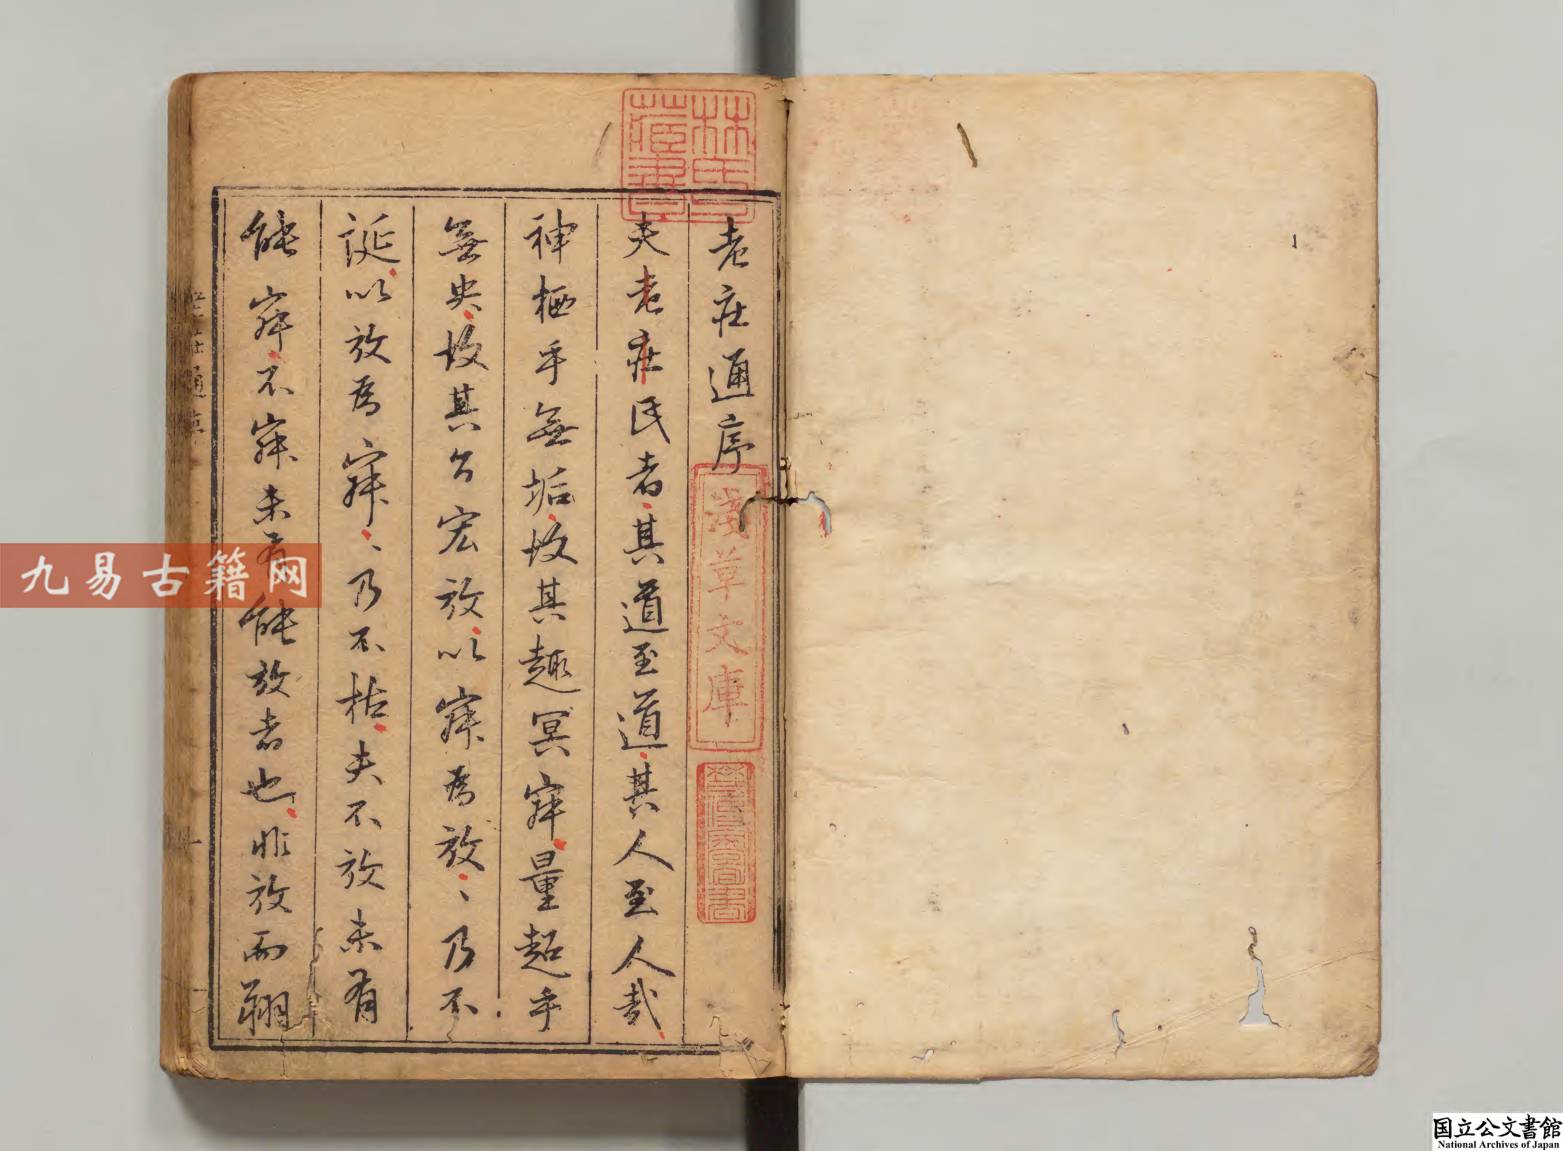 老庄通序
夫老庄氏者其道至道其人至人哉
神栖乎無垢故其趣冥寂量超乎
無央故其言宏放以寂為放〻乃不
誕以放為寂〻乃不枯夫不放未有
能寂不寂未有能放者也非放而翱
林氏藏書
淺草文庫
九易古籍网
国立公文書館
National Archives of Japan